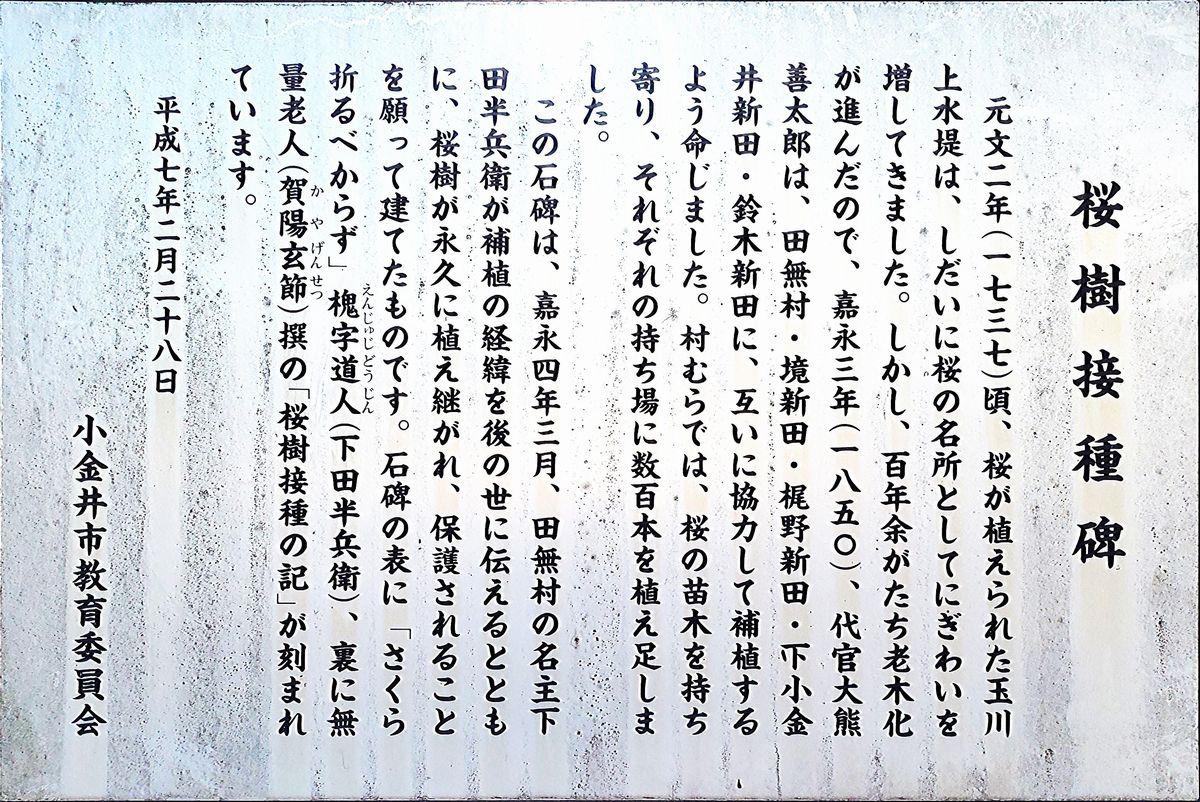 桜樹接種碑
元文二年(一七三七)頃、桜が植えられた玉川
上水堤は、しだいに桜の名所としてにぎわいを
増してきました。しかし、百年余がたち老木化
が進んだので、嘉永三年(一八五〇)、代官大熊
善太郎は、田無村・境新田・梶野新田・下小金
井新田・鈴木新田に、互いに協力して補植する
よう命じました。村むらでは、桜の苗木を持ち
寄り、それぞれの持ち場に数百本を植え足しま
した。
この石碑は、嘉永四年三月、田無村の名主下
田半兵衛が補植の経緯を後の世に伝えるととも
に、桜樹が永久に植え継がれ、保護されること
を願って建てたものです。石碑の表に「さくら
折るべからず」槐字道人(下田半兵衛)、裏に無
えんじゅじどうじん
量老人(賀陽玄節)撰の「桜樹接種の記」が刻まれ
かやげんせつ
ています。
平成七年二月二十八日
小金井市教育委員会